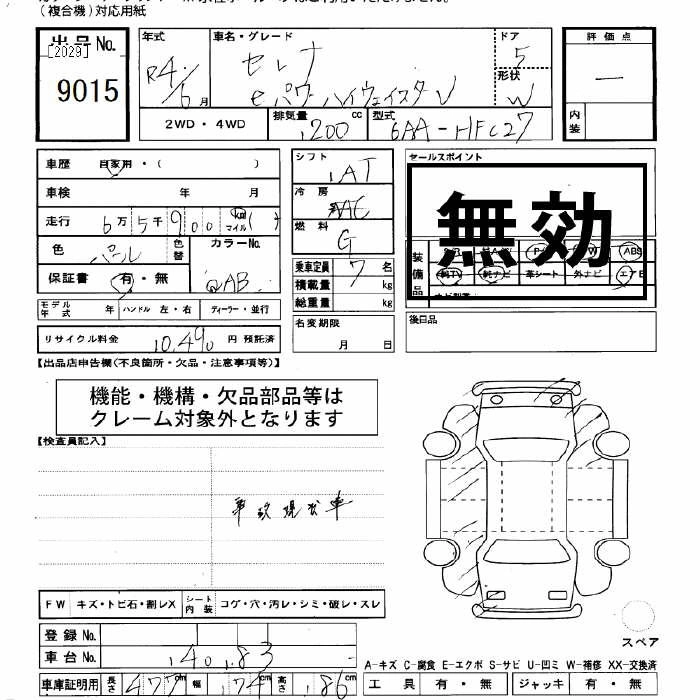 (複合機)対応用紙
出品No.
[2029]
9015
年式
R4/6月
車名・グレード
セレナ
eパワーハイウェイスターV
ドア
5
形状
W
2WD・4WD
排気量 1200 cc
型式 6AA-HFC27
評価点
―
内装
車歴 自家用・( )
車検 年 月
走行 6万5千900 km マイル ( )
色 パール 色替
カラーNo. QAB
保証書 有・無
モデル年式 年 ハンドル 左・右 ディーラー・並行
リサイクル料金 10,490円 預託済
シフト IAT
冷房 AAC
燃料 G
乗車定員 7 名
積載量 kg
総重量 kg
名変期限
月 日
セールスポイント
無効
装備品
ABS
純TV 純ナビ 革シート 外ナビ エアB
後日品
【出品店申告欄(不良箇所・欠品・注意事項等)】
機能・機構・欠品部品等は
クレーム対象外となります
【検査員記入】
事故現状車
FW キズ・トビ石・割レX シート内装 コゲ・穴・汚レ・シミ・破レ・スレ
登録No.
車台No. 140183
車庫証明用 長さ 477cm 幅 174cm 高さ 186cm
スペア
A-キズ C-腐食 E-エクボ S-サビ U-凹ミ W-補修 XX-交換済
工具 有・無 ジャッキ 有・無